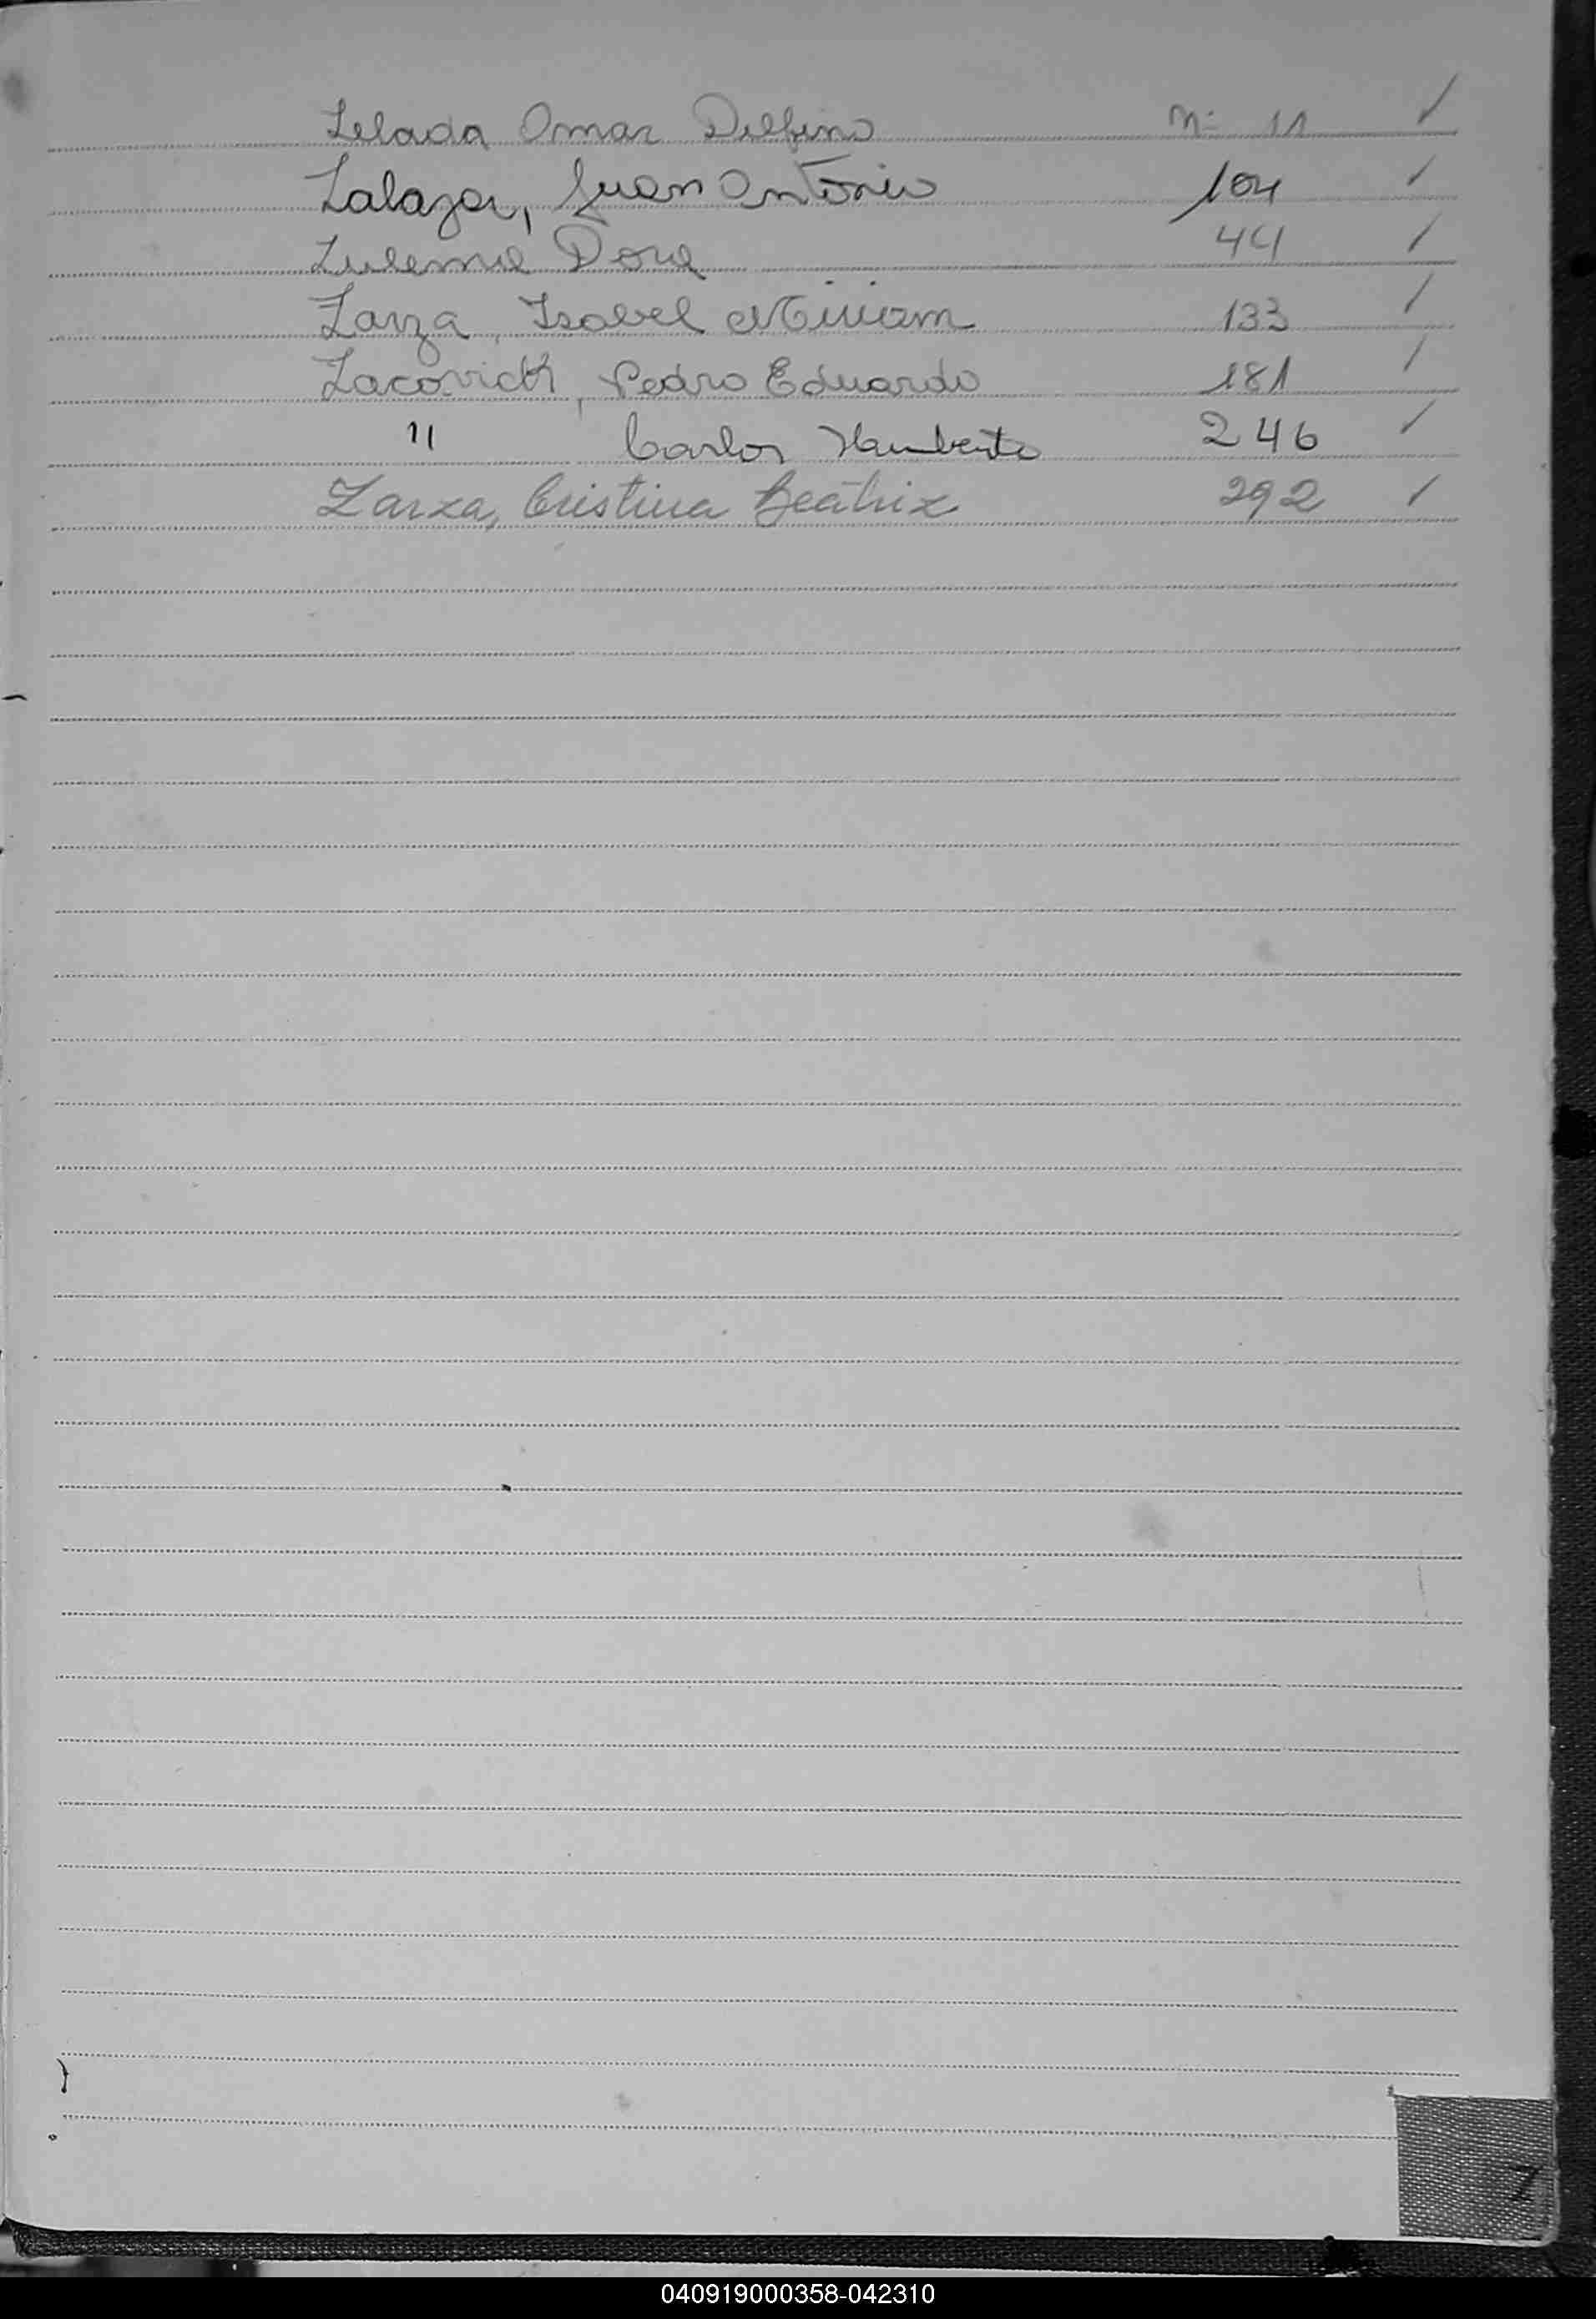 Zelada Omar Delfino Nº 11 ✓
Zalazar, Juan Antonio 104 ✓
Zulema Dora 44 ✓
Zarza, Isabel Miriam 133 ✓
Zacovich, Pedro Eduardo 181 ✓
" Carlos Humberto 246 ✓
Zarza, Cristina Beatriz 292 ✓
Z
040919000358-042310